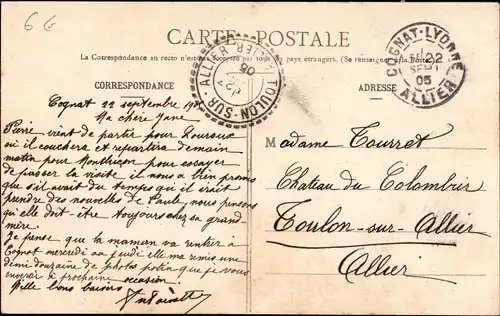 6 €
CARTE POSTALE
La Correspondance au recto n'est acceptée par tous pays étrangers. (Se renseigner à la Poste)
CORRESPONDANCE
ADRESSE
TOULON-SUR-ALLIER ALLIER
05
COGNAT-LYONNE
22
SEPT
05
ALLIER
Cognat 22 septembre
Ma chère Jane
vient de partir pour
où il couchera et repartira demain
matin pour Montluçon pour essayer
de passer la visite il nous a bien promis
que s'il avait du temps qu'il irait
prendre des nouvelles de Paule, nous pensons
qu'elle doit-être toujours chez sa grand-
mère.
Je pense que la maman va rentrer à
Cognat mercredi ou jeudi elle m'a remis une
demi douzaine de photos que je vous
enverrai à prochaine occasion.
Mille bons baisers
Madame Tourret
Château du Colombier
Toulon-sur-Allier
Allier